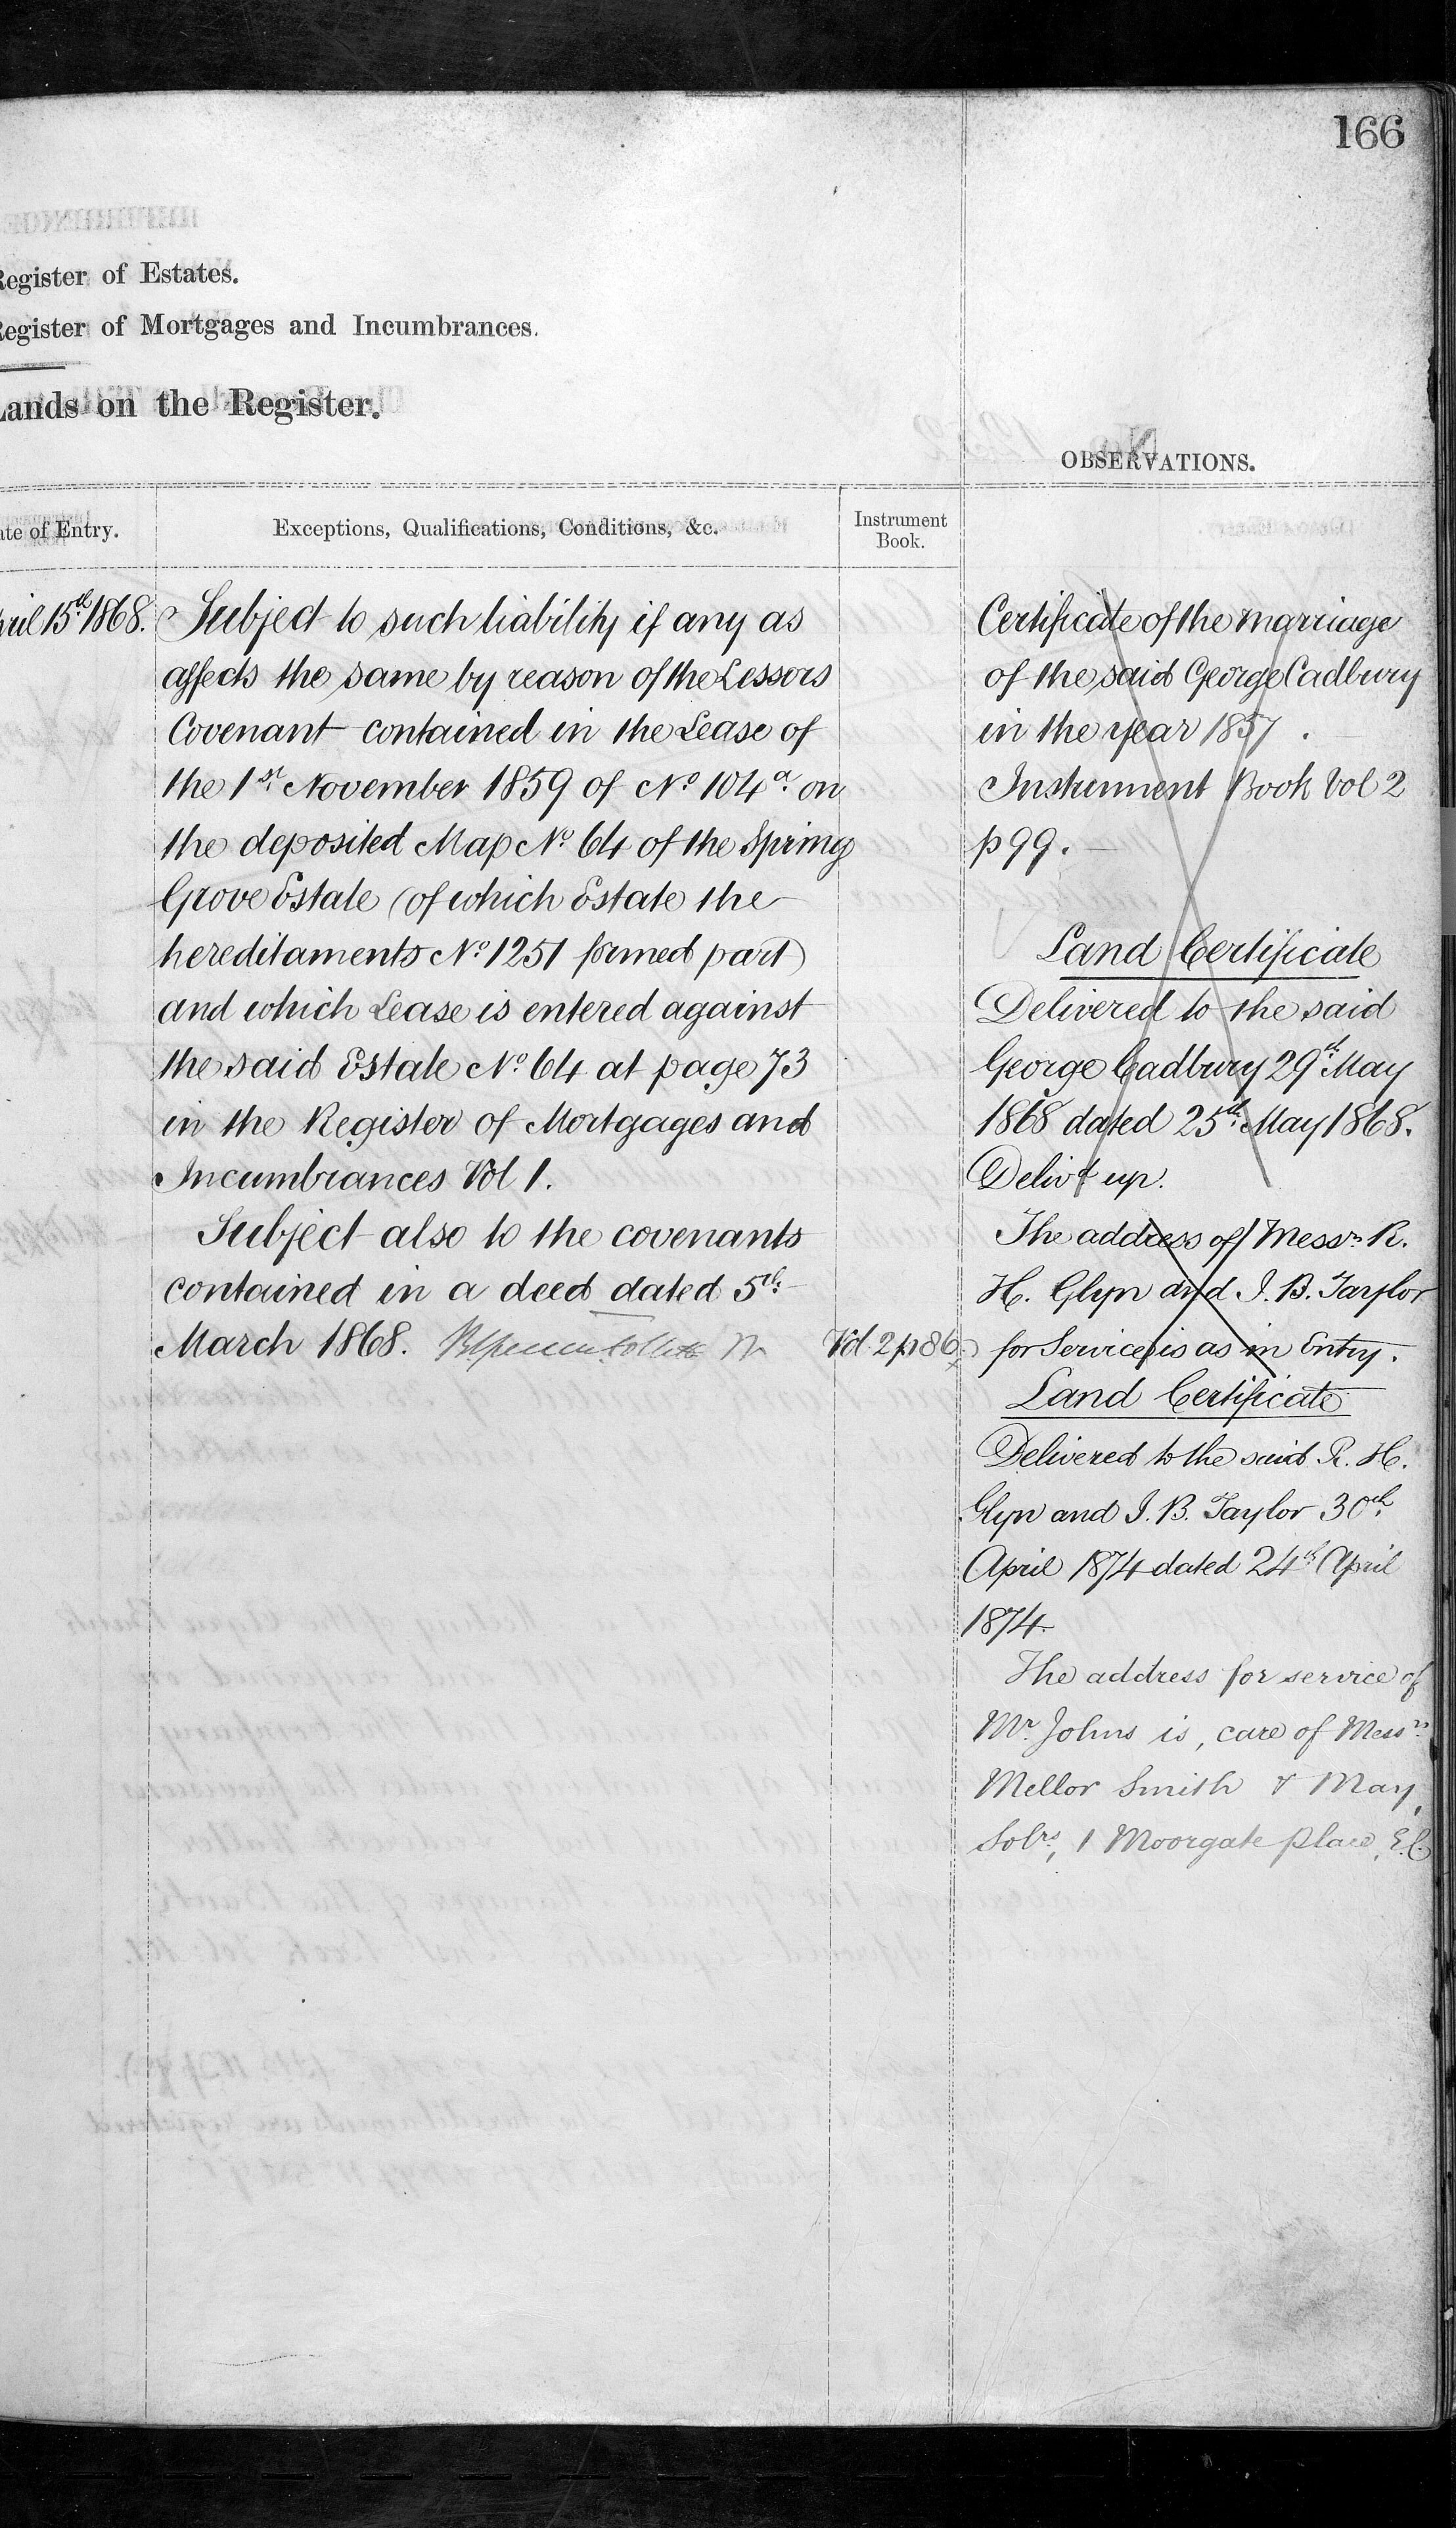 166
Register of Estates.
Register of Mortgages and Incumbrances.
Lands on the Register.
OBSERVATIONS.
ate of Entry.
Exceptions, Qualifications, Conditions, &c.
Instrument
Book.
pril 15th 1868.
Subject to such liability if any as
affects the same by reason of the Lessors
Covenant contained in the Lease of
the 1st November 1859 of No 104a on
the deposited Map No 64 of the Spring
Grove Estate (of which Estate the
hereditaments No 1251 formed part)
and which Lease is entered against
the said Estate No 64 at page 73
in the Register of Mortgages and
Incumbrances Vol 1.
Subject also to the covenants
contained in a deed dated 5th
March 1868.
Vol. 2 p 86.
Certificate of the marriage
of the said George Cadbury
in the year 1857.
Instrument Book Vol 2
p 99.
Land Certificate
Delivered to the said
George Cadbury 29th May
1868 dated 25th May 1868.
Delivd up.
The address of Messrs R.
H. Glyn and I. B. Taylor
for Service is as in Entry.
Land Certificate
Delivered to the said R. H.
Glyn and I. B. Taylor 30th
April 1874 dated 24th April
1874.
The address for service of
Mr Johns is, care of Messrs
Mellor Smith & May,
Solrs, 1 Moorgate Place, E.C.